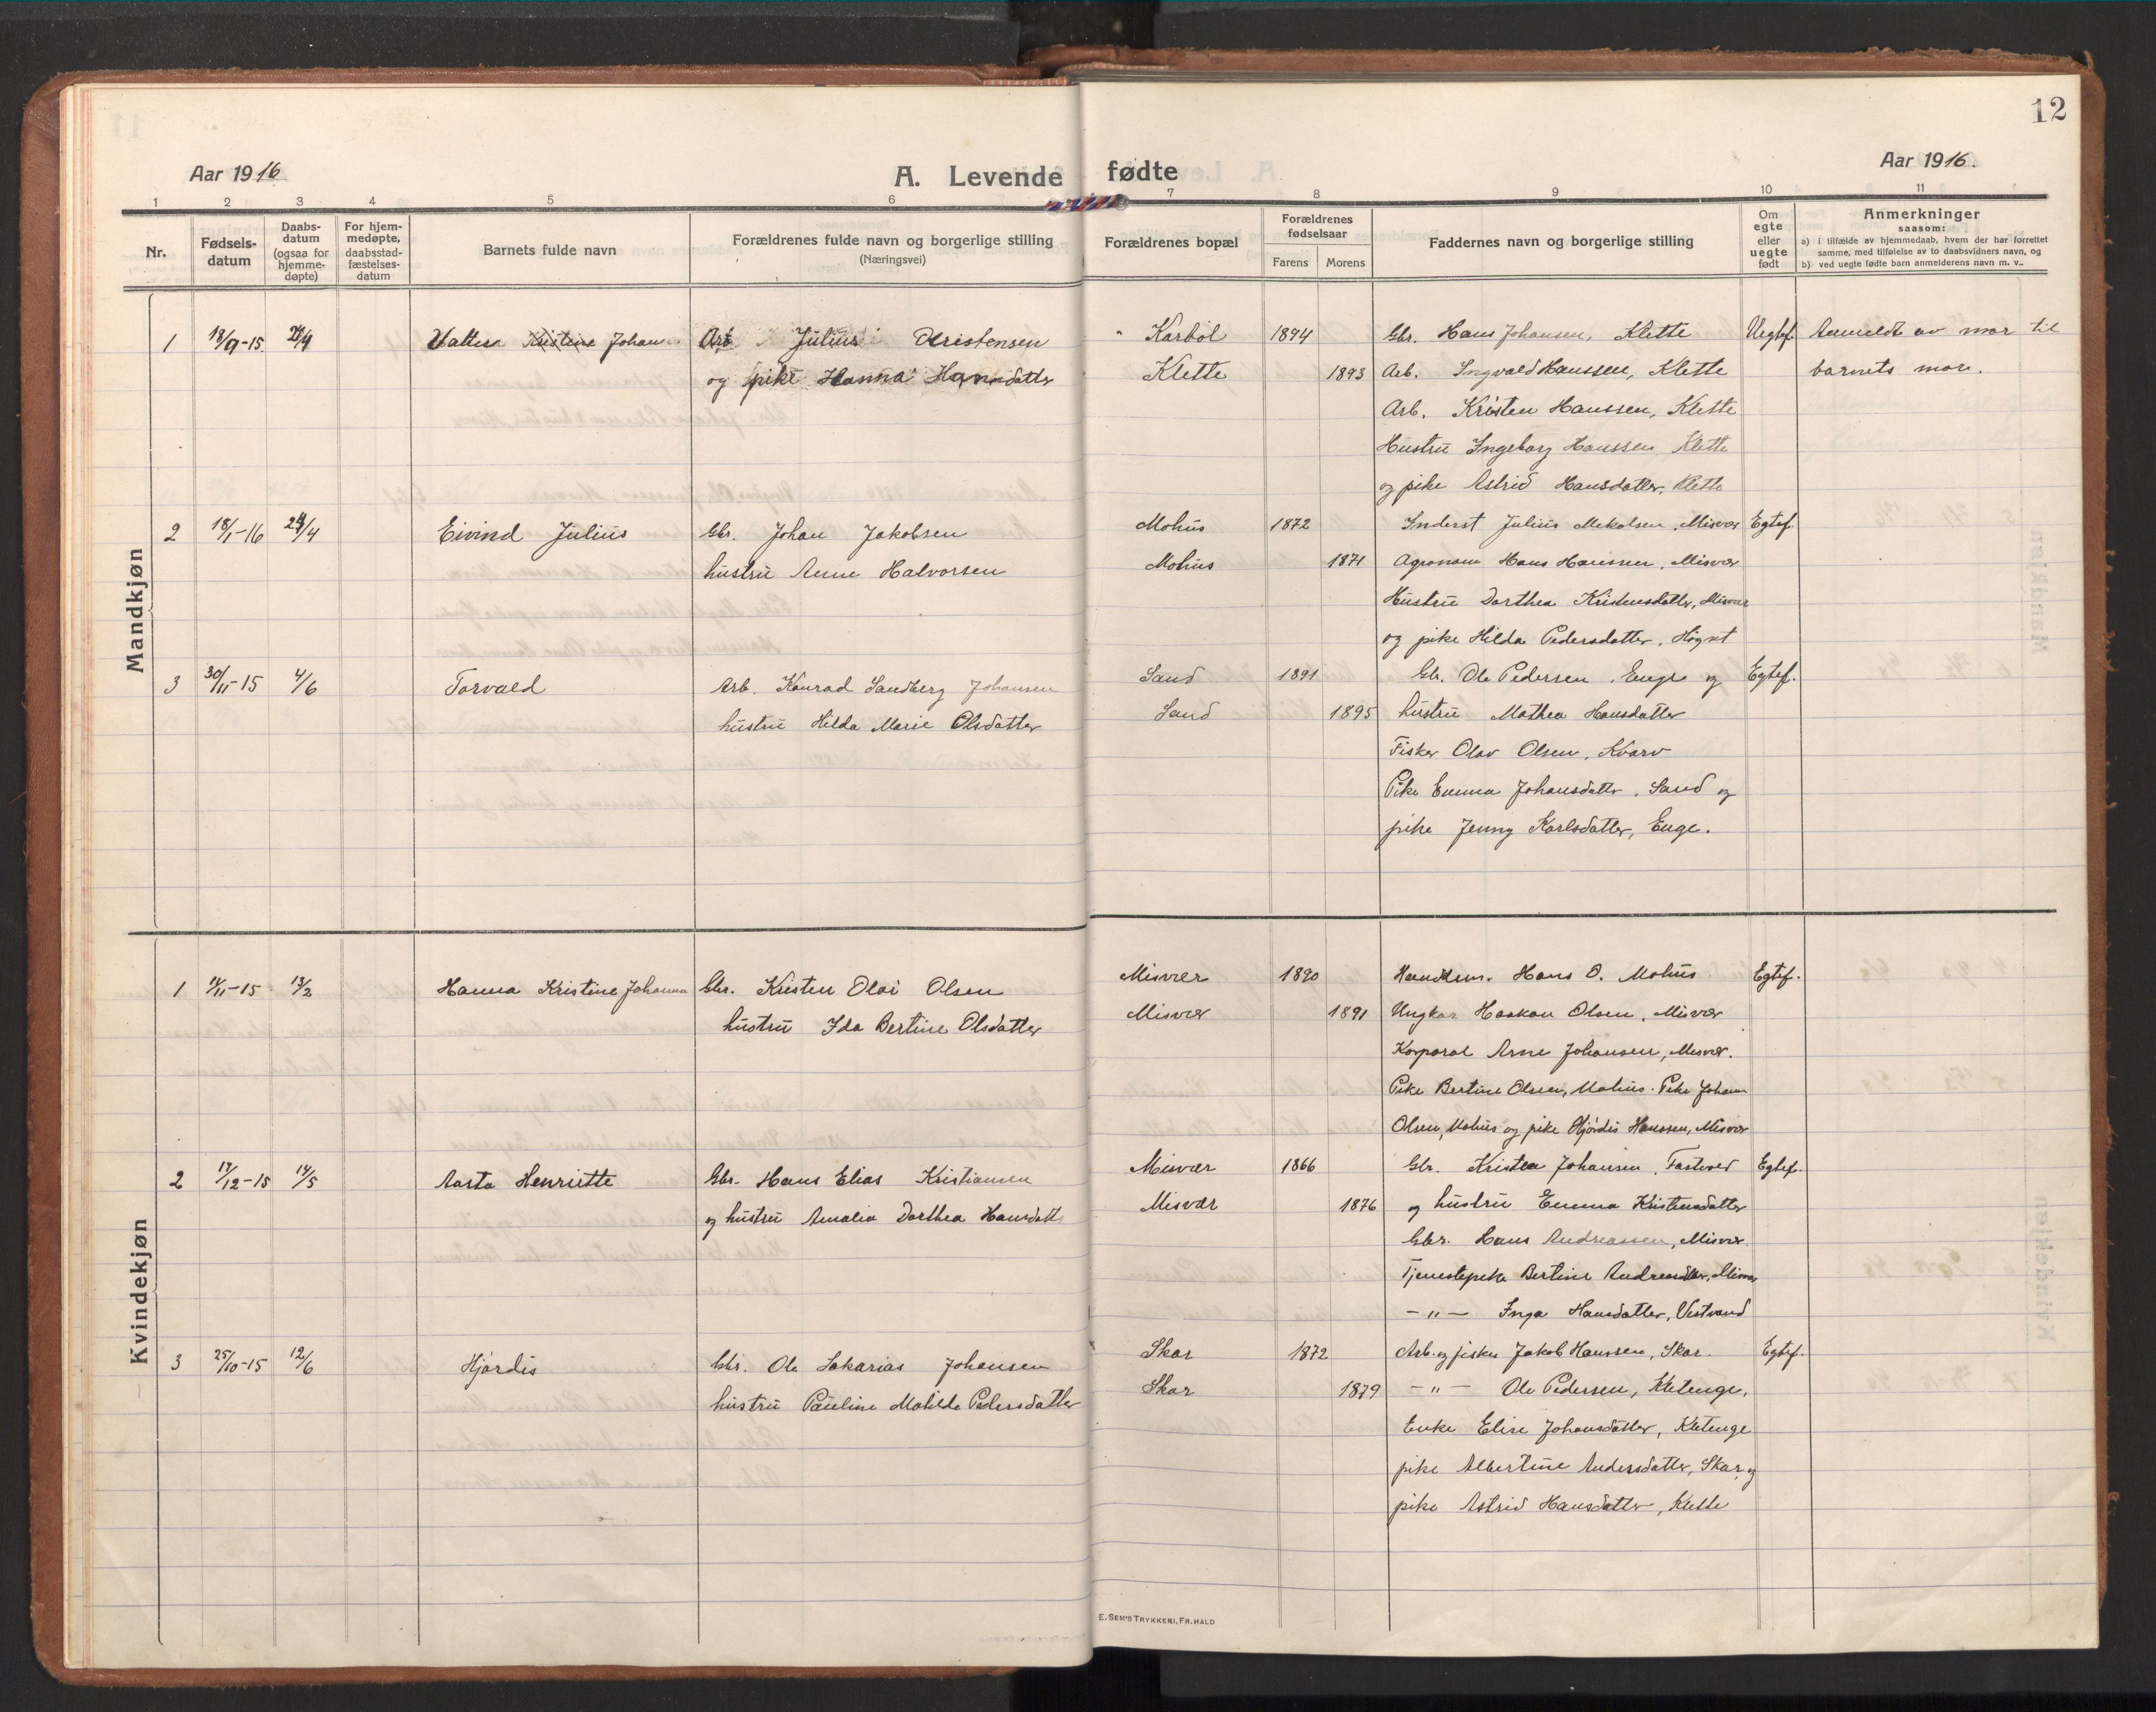 12
Aar 1916
A. Levende fødte
Aar 1916.
1 2 3 4 5 6 7 8 9 10 11
Nr.
Fødsels-
datum
Daabs-
datum
(ogsaa for
hjemme-
døpte)
For hjem-
medøpte,
daabsstad-
fæstelses-
datum
Barnets fulde navn
Forældrenes fulde navn og borgerlige stilling
(Næringsvei)
Forældrenes bopæl
Forældrenes
fødselsaar
Farens Morens
Faddernes navn og borgerlige stilling
Om
egte
eller
uegte
født
Anmerkninger
saasom:
a) i tilfælde av hjemmedaab, hvem der har forrettet
samme, med tilføielse av to daabsvidners navn, og
b) ved uegte fødte barn anmelderens navn m. v..
Mandkjøn
1 18/9-15 24/4 Kristine Johan Arb Julius Kristensen Karbøl 1894 Gbr. Hans Johansen, Klette Uegtef. Anmeldt av mor til
og pike Hanna Hansdatter Klette 1893 Arb. Ingvald Hanssen, Klette barnets mor.
Arb. Kristen Hanssen, Klette
Hustru Ingeborg Hanssen Klette
og pike Astrid Hansdatter, Klette
2 18/1-16 24/4 Eivind Julius Gbr. Johan Jakobsen Mohus 1872 Inderst Julius Mekalsen, Misvær Egtef.
hustru Anne Halvorsen Mohus 1871 Agronom Hans Hanssen, Misvær
Hustru Dorthea Kristensdatter, Misvær
og pike Hilda Pedersdatter, Høgset
3 30/11-15 4/6 Torvald Arb. Konrad Sandberg Johansen Sand 1891 Gbr. Ole Pedersen, Enge og Egtef.
hustru Hilda Marie Olsdatter Sand 1895 hustru Mathea Hansdatter
Fisker Olav Olsen, Kvarv
Pike Emma Johansdatter, Sand og
pike Jenny Karlsdatter, Enge.
Kvindekjøn
1 14/11-15 13/2 Hanna Kristine Johanna Gbr. Kristen Olai Olsen Misvær 1890 Handlsm. Hans O. Mohus Egtef.
hustru Ida Bertine Olsdatter Misvær 1891 Ungkar Haakon Olsen, Misvær
Korporal Arne Johansen, Misvær.
Pike Bertine Olsen, Mohus. Pike Johanna
Olsen, Mohus og pike Hjørdis Hanssen, Misvær
2 17/12-15 14/5 Aasta Henriette Gbr. Hans Elias Kristiansen Misvær 1866 Gbr. Kristen Johansen, Fastvold Egtef.
og hustru Amalia Dorthea Hansdatter Misvær 1876 og hustru Emma Kristensdatter
Gbr. Hans Andreassen, Misvær.
Tjenestepike Bertine Andreasdatter, Misvær
-"- Inga Hansdatter, Vestvand
3 25/10-15 12/6 Hjørdis Gbr. Ole Sakarias Johansen Skar 1872 Arb. og fisker Jakob Hanssen, Skar. Egtef.
hustru Pauline Mahilde Pedersdatter Skar 1879 -"- Ole Pedersen, Kletenge,
Enke Elise Johansdatter, Kletenge
pike Albertine Andersdatter, Skar og
pike Astrid Hansdatter, Klette
E. SEM'S TRYKKERI, FR. HALD